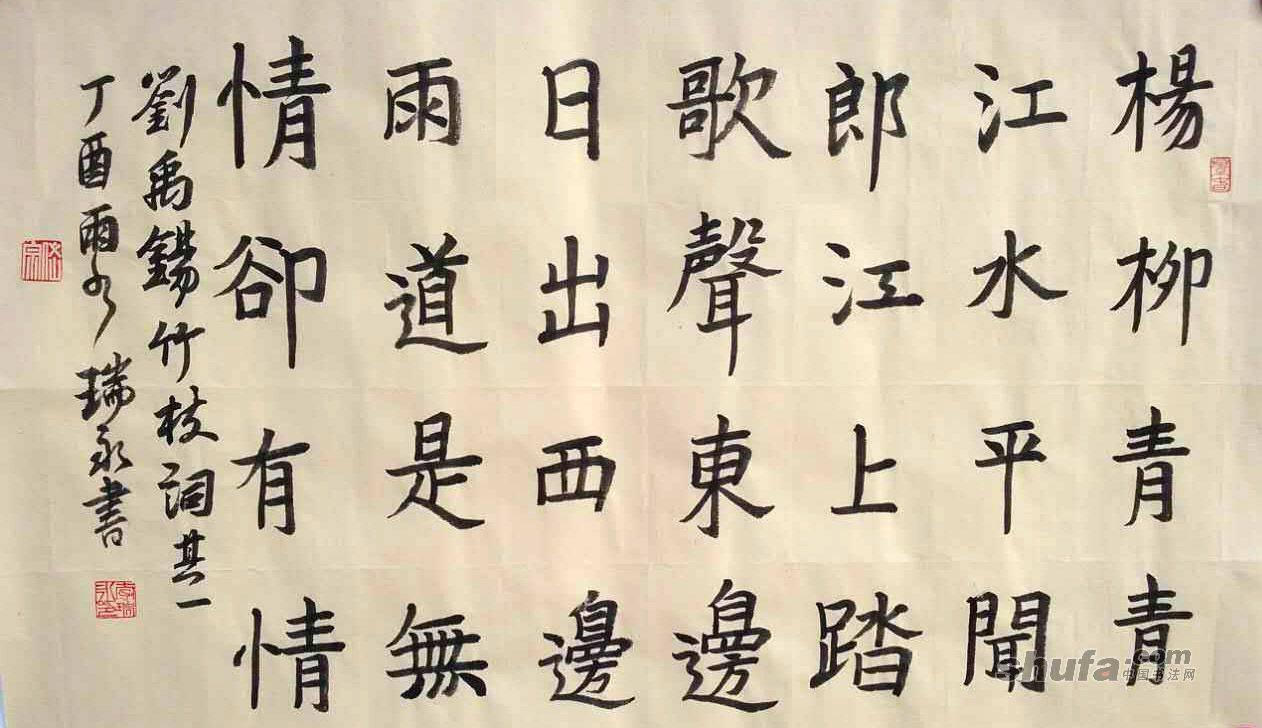 楊柳青青
江水平聞
郎江上踏
歌聲東邊
日出西邊
雨道是無
情卻有情
劉禹錫竹枝詞其一
丁酉雨水瑞永書
shufa.com
中国书法网